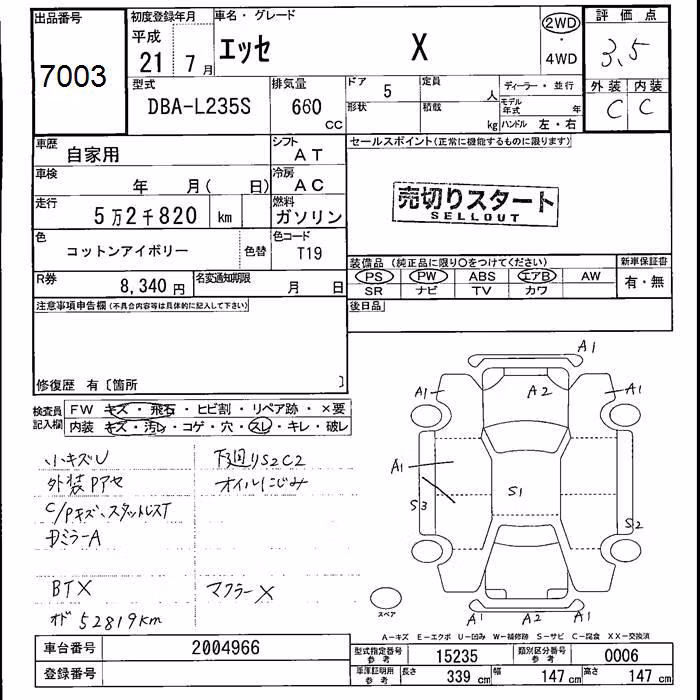 出品番号
7003
初度登録年月
平成
21 年 7 月
車名・グレード
エッセ X
2WD
・
4WD
評価点
3.5
外装 内装
C C
型式
DBA-L235S
排気量
660 CC
ドア 5
定員 人
形状
積載 kg
ディーラー・並行
モデル年式 年
ハンドル 左・右
車歴 自家用
シフト AT
車検 年 月( 日)
冷房 AC
走行 5万2千820 km
燃料 ガソリン
色 コットンアイボリー 色替
色コード T19
R券 8,340 円
名変通知期限 月 日
セールスポイント(正常に機能するものに限ります)
売切りスタート
SELLOUT
装備品(純正品に限り○をつけてください)
PS PW ABS エアB AW
SR ナビ TV カワ
新車保証書
有・無
後日品
注意事項申告欄(不具合内容等は具体的に記入して下さい)
修復歴 有〔箇所 〕
検査員記入欄
FW キズ・飛石・ヒビ割・リペア跡・×要
内装 キズ・汚レ・コゲ・穴・スレ・キレ・破レ
小キズU
外装Pアセ
C/Pキズ、スタットレスT
DミラーA
BTX
オド 52819km
下廻りS2C2
オイルにじみ
マフラーX
A1
A1 A2 A1
A1
S1
S3 S2
A1 A1
スペア
A-キズ E-エクボ U-凹み W-補修跡 S-サビ C-腐食 XX-交換済
車台番号 2004966
登録番号
型式指定番号 参考 15235
類別区分番号 参考 0006
車庫証明用 参考 長さ 339 cm 幅 147 cm 高さ 147 cm